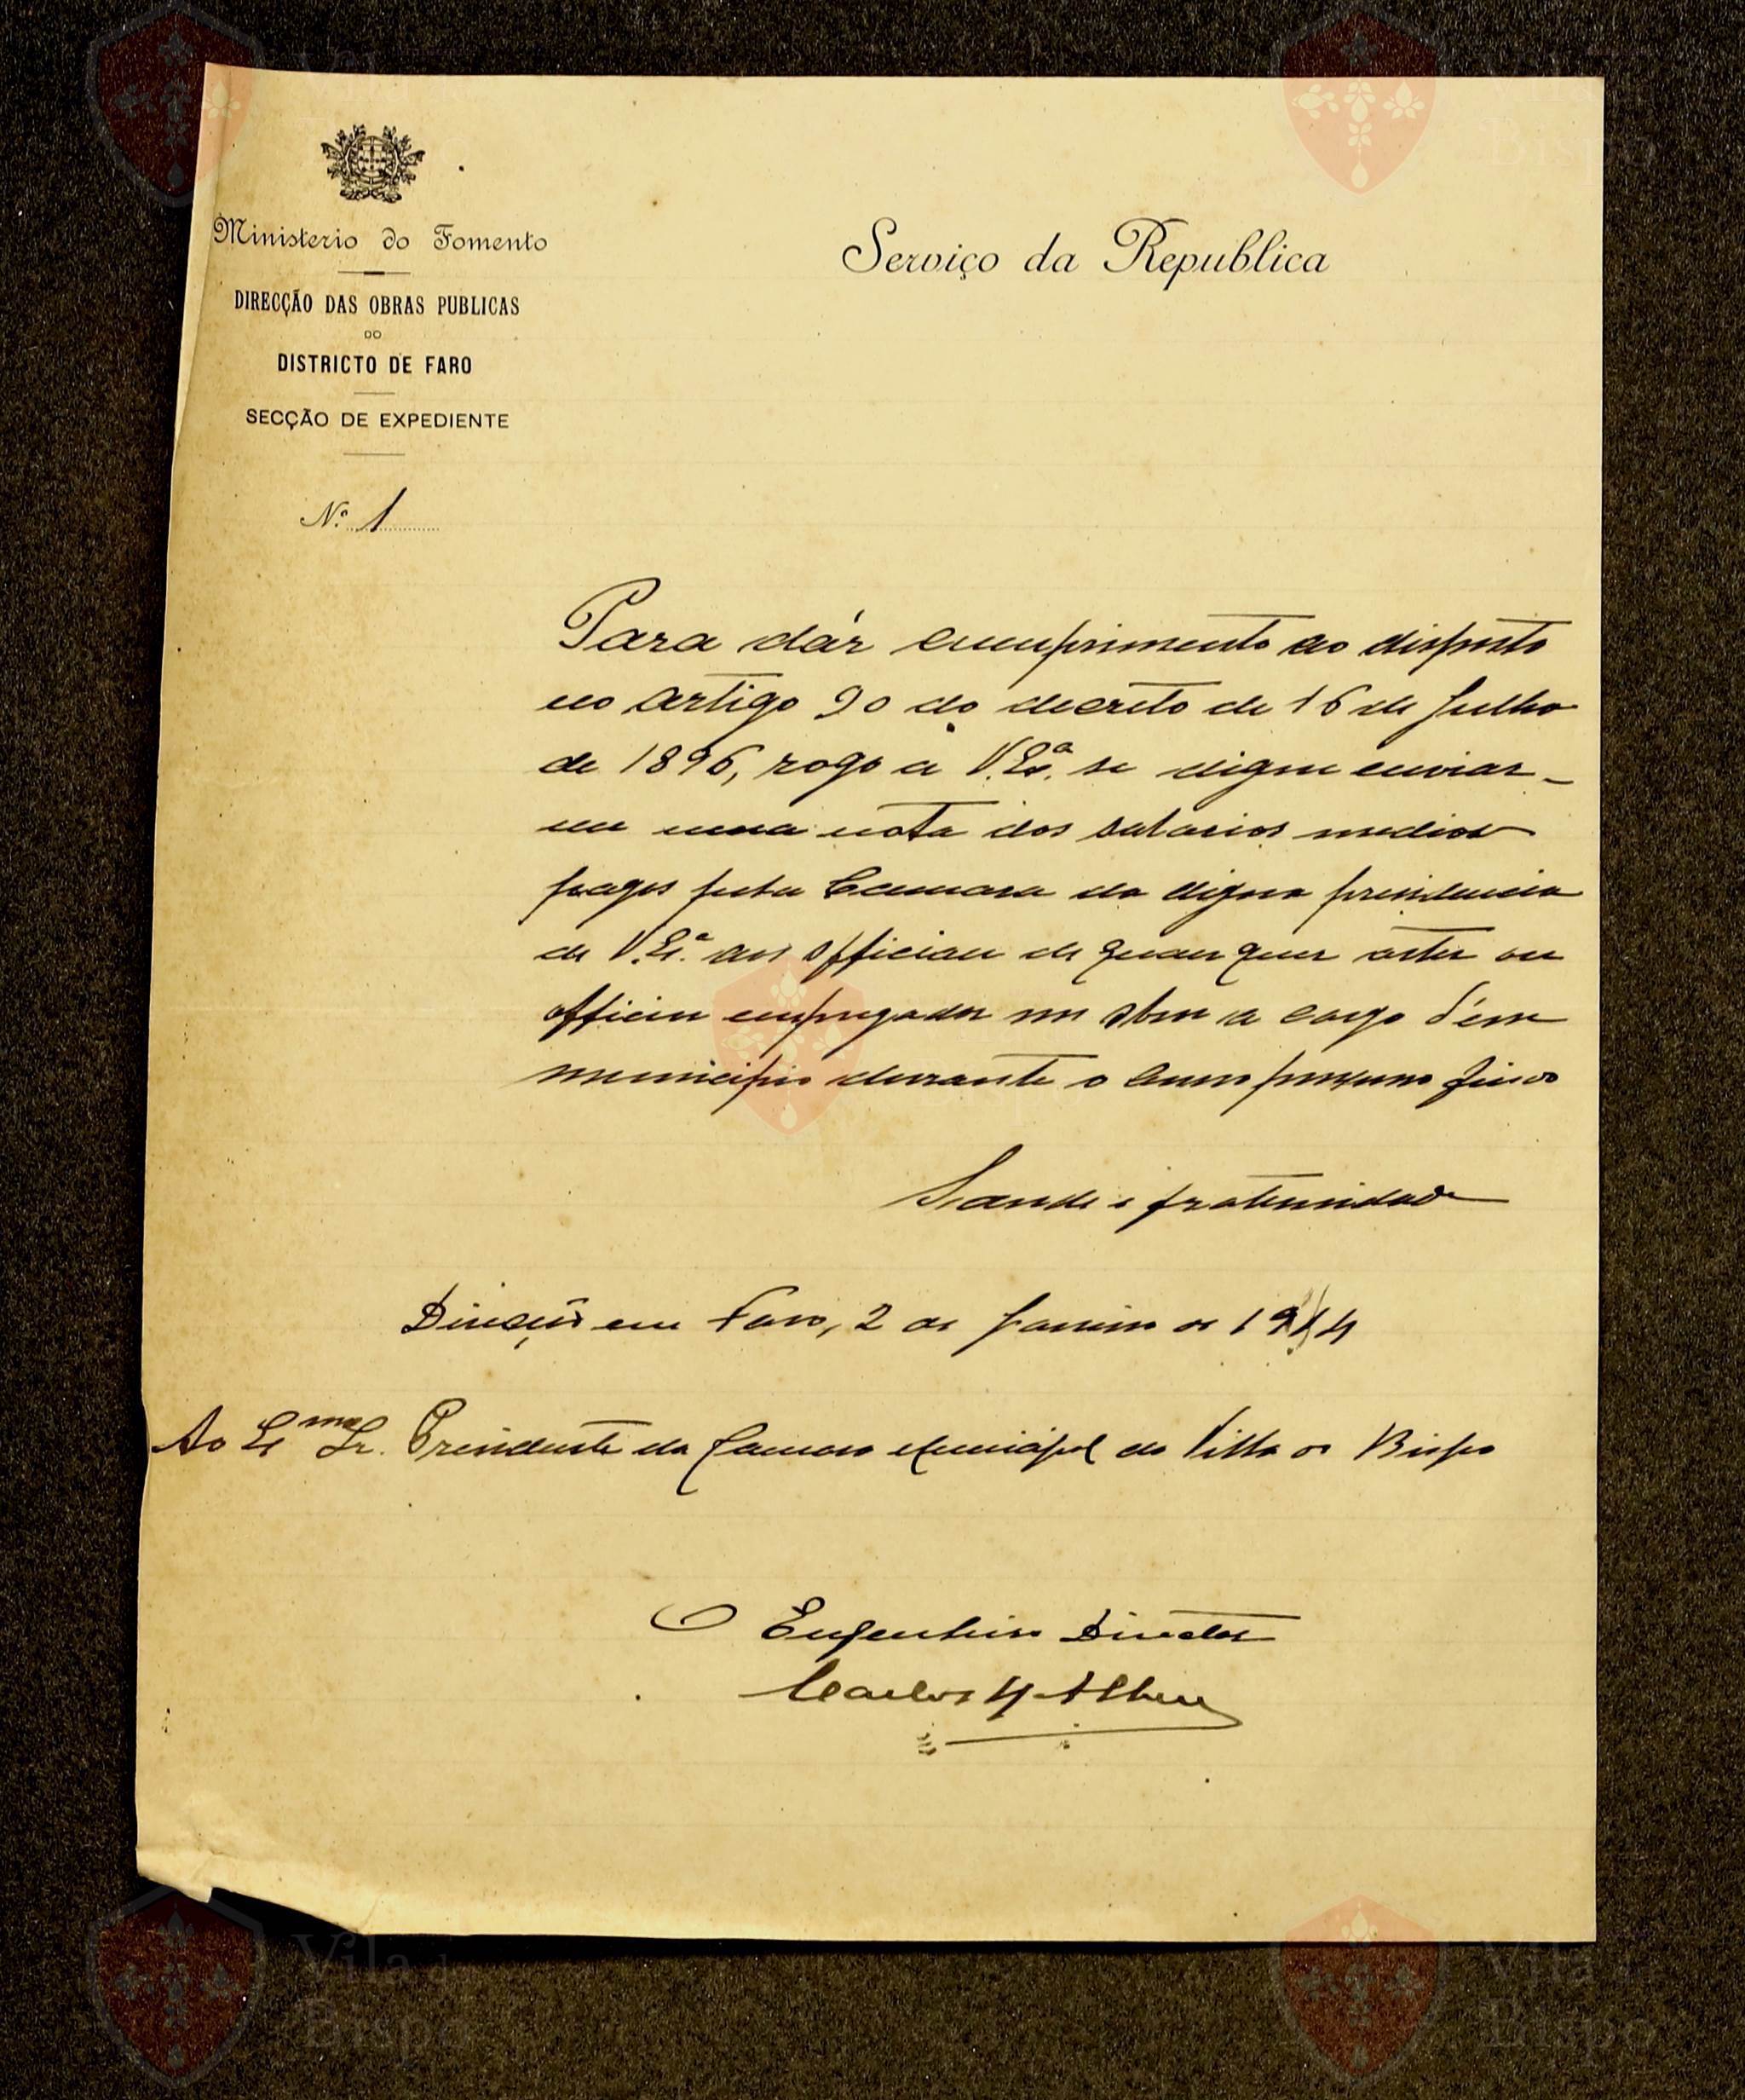 Ministerio do Fomento
DIRECÇÃO DAS OBRAS PUBLICAS
DO
DISTRICTO DE FARO
SECÇÃO DE EXPEDIENTE
Nº 1
Serviço da Republica
Para dár cumprimento ao disposto
no artigo 90 do decreto de 16 de Julho
de 1896, rogo a V. Exª. se digne enviar-
me uma nota dos salarios medios
pagos pela Camara da digna presidencia
de V. Exª. aos officiaes de quaesquer artes ou
officios empregados em obras a cargo d'esse
municipio durante o anno proximo findo
Saude e fraternidade
Direcção em Faro, 2 de Janeiro de 1914
Ao Exmo Sr. Presidente da Camara Municipal de Villa do Bispo
O Engenheiro Director
Carlos
Vila d
Bispo
Vila d
Bispo